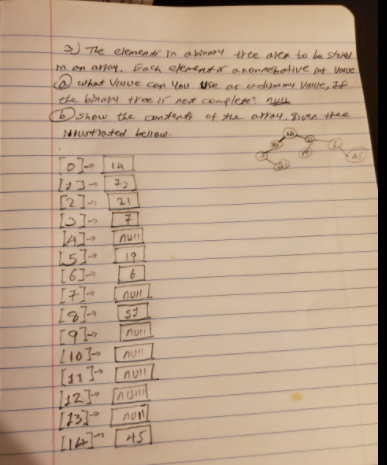 3) The elements in a binary tree are to be stored
in an array. Each element is a nonnegative int value
(a) what value can you use as a dummy value, if
the binary tree is not complete? null
(b) show the contents of the array, given tree
illustrated bellow.
[0]→ 14
[1]→ 72
[2]→ 21
[3]→ 7
[4]→ null
[5]→ 19
[6]→ 6
[7]→ null
[8]→ 52
[9]→ null
[10]→ null
[11]→ null
[12]→ null
[13]→ null
[14]→ 45